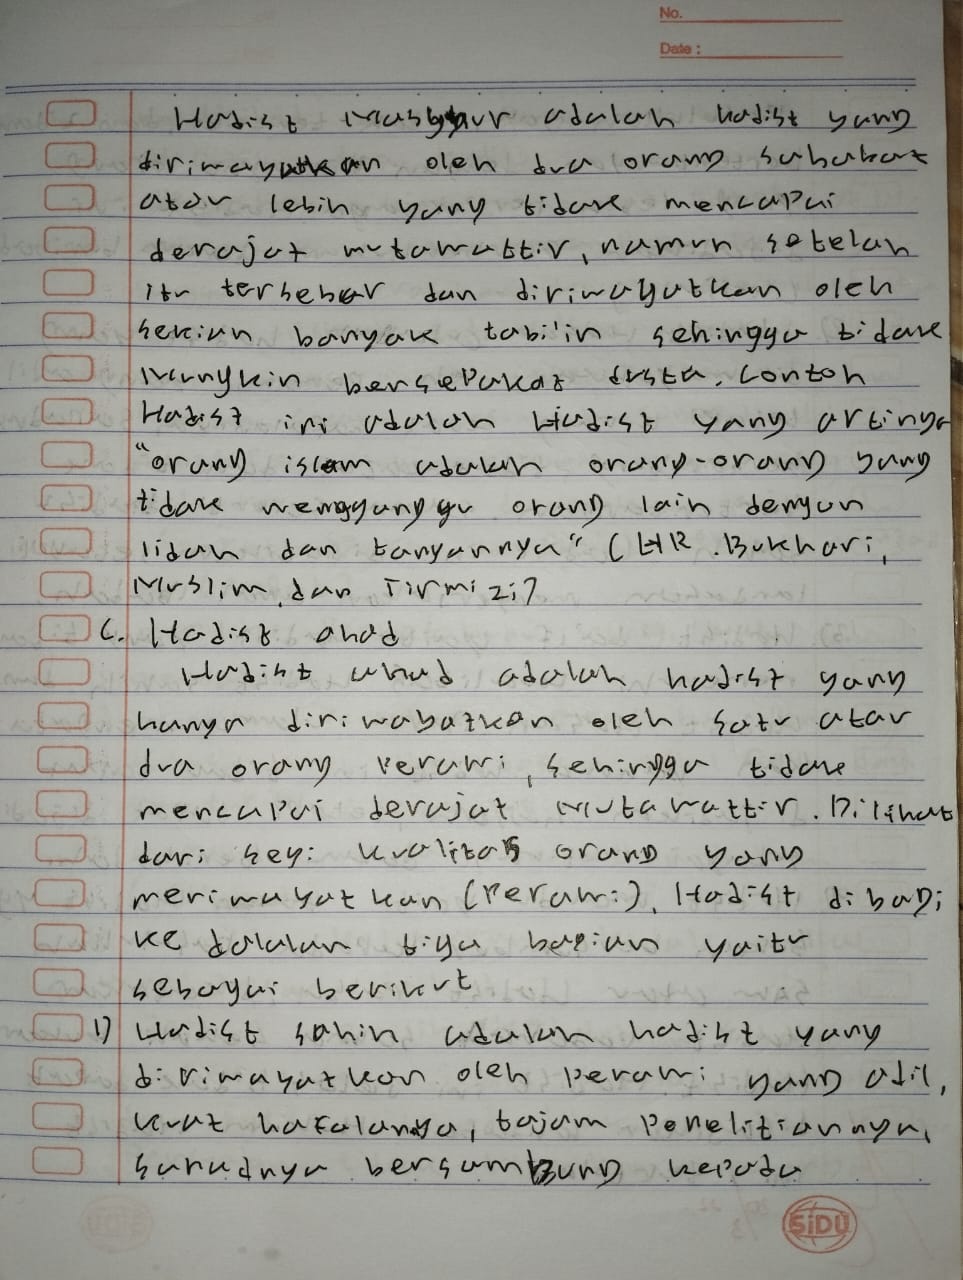 No.
Date :
Hadist Masyhur adalah hadist yang
diriwayatkan oleh dua orang sahabat
atau lebih yang tidak mencapai
derajat mutawattir, namun setelah
itu tersebar dan diriwayatkan oleh
sekian banyak tabi'in sehingga tidak
Mungkin bersepakat dusta. Contoh
Hadist ini adalah Hadist yang artinya
"orang islam adalah orang-orang yang
tidak mengganggu orang lain dengan
lidah dan tangannya" (HR. Bukhari,
Muslim, dan Tirmizi)
C. Hadist ahad
Hadist ahad adalah hadist yang
hanya diriwabatkan oleh satu atau
dua orang perawi, sehingga tidak
mencapai derajat Mutawattir. Dilihat
dari segi kualitas orang yang
meriwayatkan (perawi), Hadist dibagi
ke dalalam tiga bagian yaitu
sebagai berikut
1) Hadist sahih adalah hadist yang
diriwayatkan oleh perawi yang adil,
kuat hafalannya, tajam penelitiannya,
sanadnya bersambung kepada
SiDU